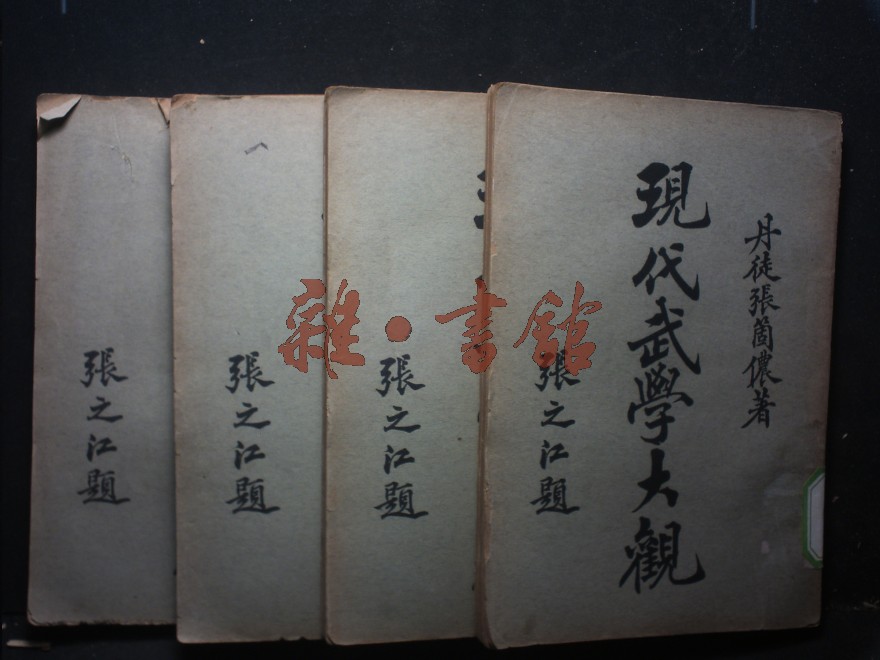 丹徒張箇儂著
現代武學大觀
張之江題
張之江題
張之江題
張之江題
雜·書館